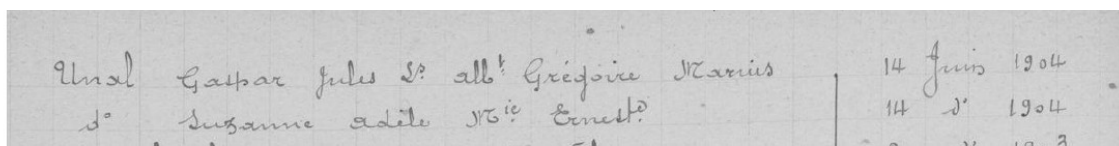 Unal Gaspar Jules Ls albt Grégoire Marius 14 Juin 1904
do Suzanne Adèle Mie Erneste 14 do 1904